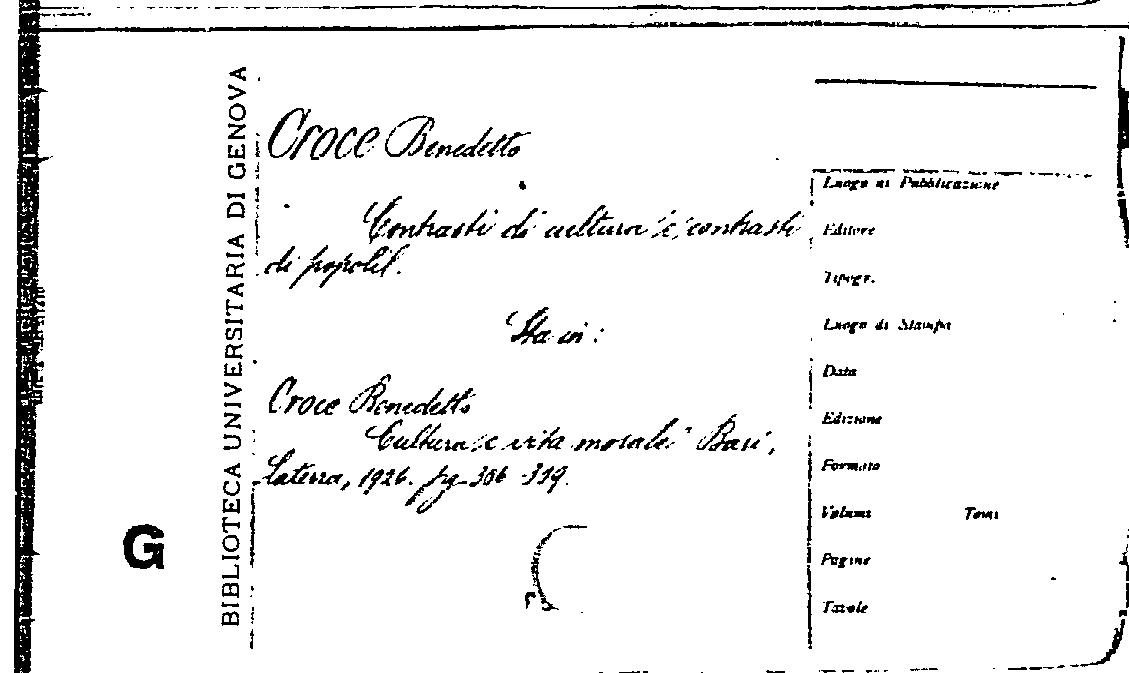 BIBLIOTECA UNIVERSITARIA DI GENOVA
G
Croce Benedetto
Contrasti di cultura e contrasti
di popoli.
Sta in:
Croce Benedetto
Cultura e vita morale Bari,
Laterza, 1926. pg. 306-319.
Luogo di Pubblicazione
Editore
Tipogr.
Luogo di Stampa
Data
Edizione
Formato
Volumi Tomi
Pagine
Tavole